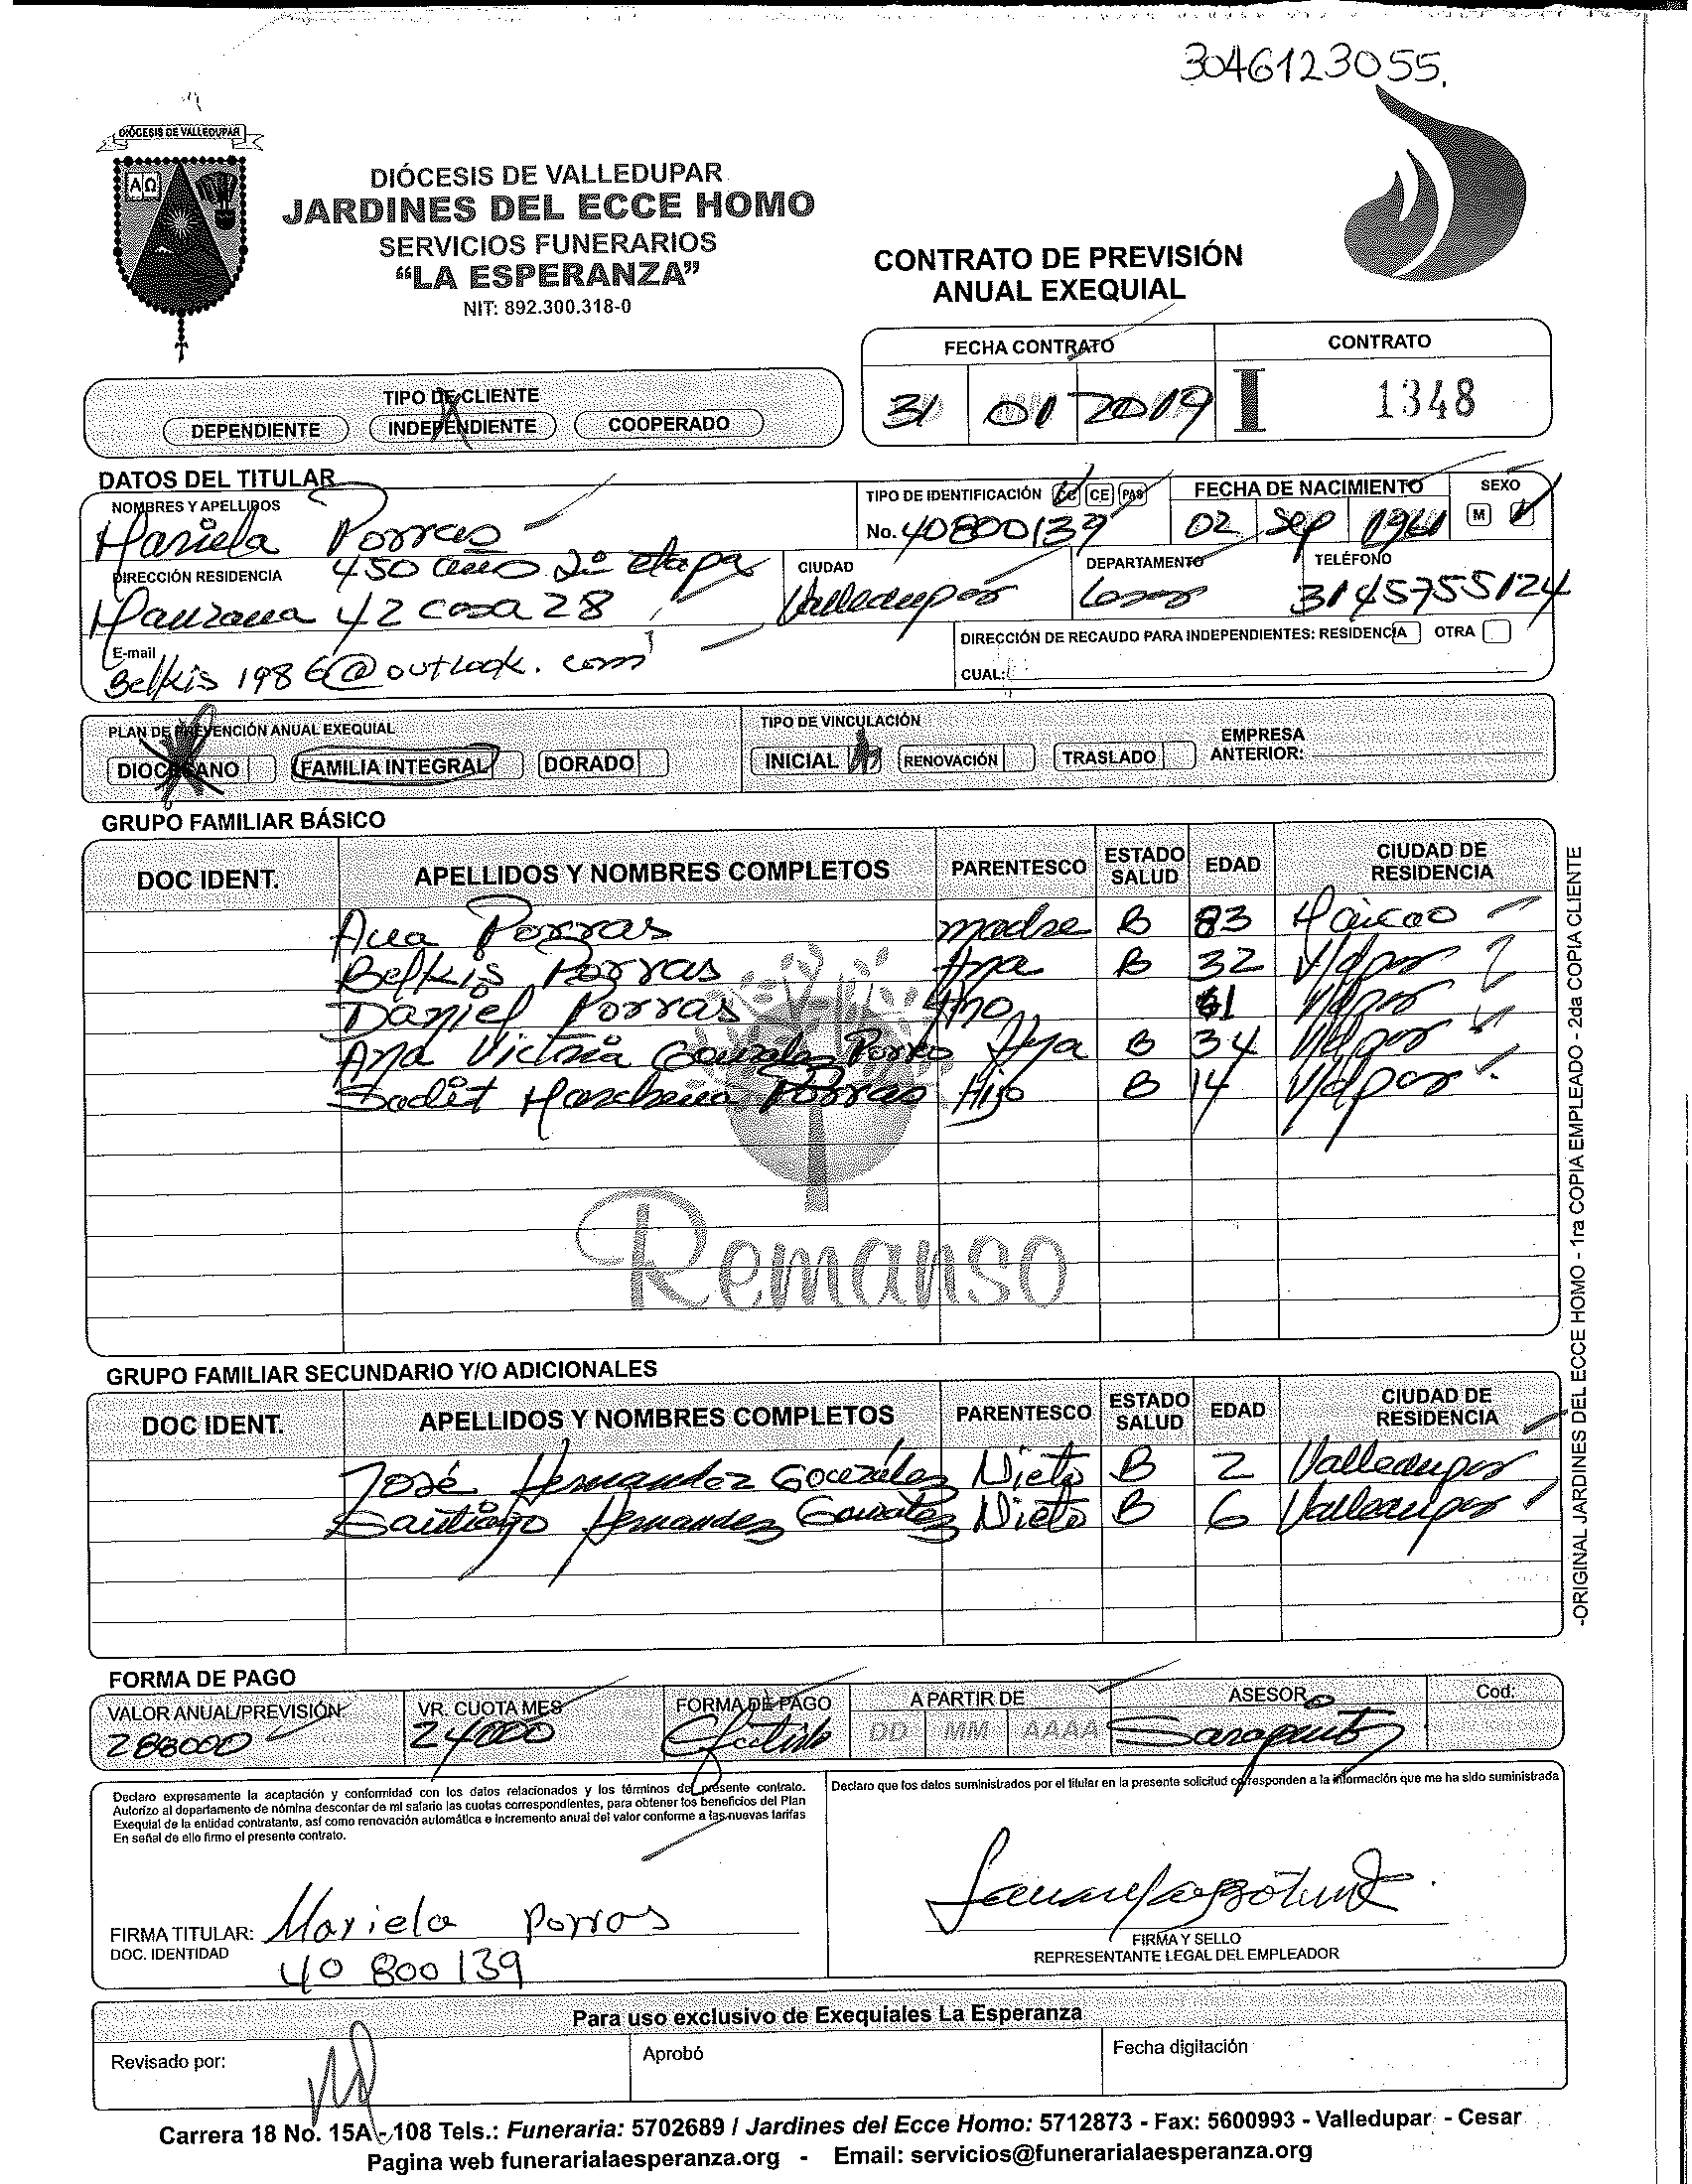 3046123055.
DIÓCESIS DE VALLEDUPAR
AΩ
DIÓCESIS DE VALLEDUPAR
JARDINES DEL ECCE HOMO
SERVICIOS FUNERARIOS
“LA ESPERANZA”
NIT: 892.300.318-0
CONTRATO DE PREVISIÓN
ANUAL EXEQUIAL
FECHA CONTRATO CONTRATO
31 01 2019 I 1348
TIPO DE CLIENTE
DEPENDIENTE INDEPENDIENTE COOPERADO
DATOS DEL TITULAR
NOMBRES Y APELLIDOS TIPO DE IDENTIFICACIÓN CC CE PAS FECHA DE NACIMIENTO SEXO
Mariela Porras No. 40800139 02 Sep 1961 M
DIRECCIÓN RESIDENCIA 450 años 2º etapa CIUDAD DEPARTAMENTO TELÉFONO
Manzana 42 casa 28 Valledupar Cesar 3145755124
DIRECCIÓN DE RECAUDO PARA INDEPENDIENTES: RESIDENCIA OTRA
E-mail
Belkis 1986@outlook.com CUAL:
PLAN DE PREVENCIÓN ANUAL EXEQUIAL TIPO DE VINCULACIÓN
DIOCESANO FAMILIA INTEGRAL DORADO INICIAL RENOVACIÓN TRASLADO EMPRESA ANTERIOR:
GRUPO FAMILIAR BÁSICO
DOC IDENT. APELLIDOS Y NOMBRES COMPLETOS PARENTESCO ESTADO SALUD EDAD CIUDAD DE RESIDENCIA
Ana Porras madre B 83 Maicao
Belkis Porras Hija B 32 V/dpar
Daniel Porras V/dpar
Ana Victoria Gonzalez Porras Hija B 34 V/dpar
Sadit Porras Hijo B 14 V/dpar
Remanso
GRUPO FAMILIAR SECUNDARIO Y/O ADICIONALES
DOC IDENT. APELLIDOS Y NOMBRES COMPLETOS PARENTESCO ESTADO SALUD EDAD CIUDAD DE RESIDENCIA
José Hernandez González Nieto B 2 Valledupar
Santiago Hernandez González Nieto B 6 Valledupar
-ORIGINAL JARDINES DEL ECCE HOMO - 1ra COPIA EMPLEADO - 2da COPIA CLIENTE
FORMA DE PAGO
VALOR ANUAL/PREVISIÓN VR. CUOTA MES FORMA DE PAGO A PARTIR DE ASESOR Cod:
288000 24000 Efectivo DD MM AAAA
Declaro expresamente la aceptación y conformidad con los datos relacionados y los términos del presente contrato.
Autorizo al departamento de nómina descontar de mi salario las cuotas correspondientes, para obtener los beneficios del Plan
Exequial de la entidad contratante, así como renovación automática e incremento anual del valor conforme a las nuevas tarifas
En señal de ello firmo el presente contrato.
Declaro que los datos suministrados por el titular en la presente solicitud corresponden a la información que me ha sido suministrada
FIRMA TITULAR: Mariela Porras
DOC. IDENTIDAD 40 800 139
FIRMA Y SELLO
REPRESENTANTE LEGAL DEL EMPLEADOR
Para uso exclusivo de Exequiales La Esperanza
Revisado por: Aprobó Fecha digitación
Carrera 18 No. 15A - 108 Tels.: Funeraria: 5702689 / Jardines del Ecce Homo: 5712873 - Fax: 5600993 - Valledupar - Cesar
Pagina web funerarialaesperanza.org - Email: servicios@funerarialaesperanza.org